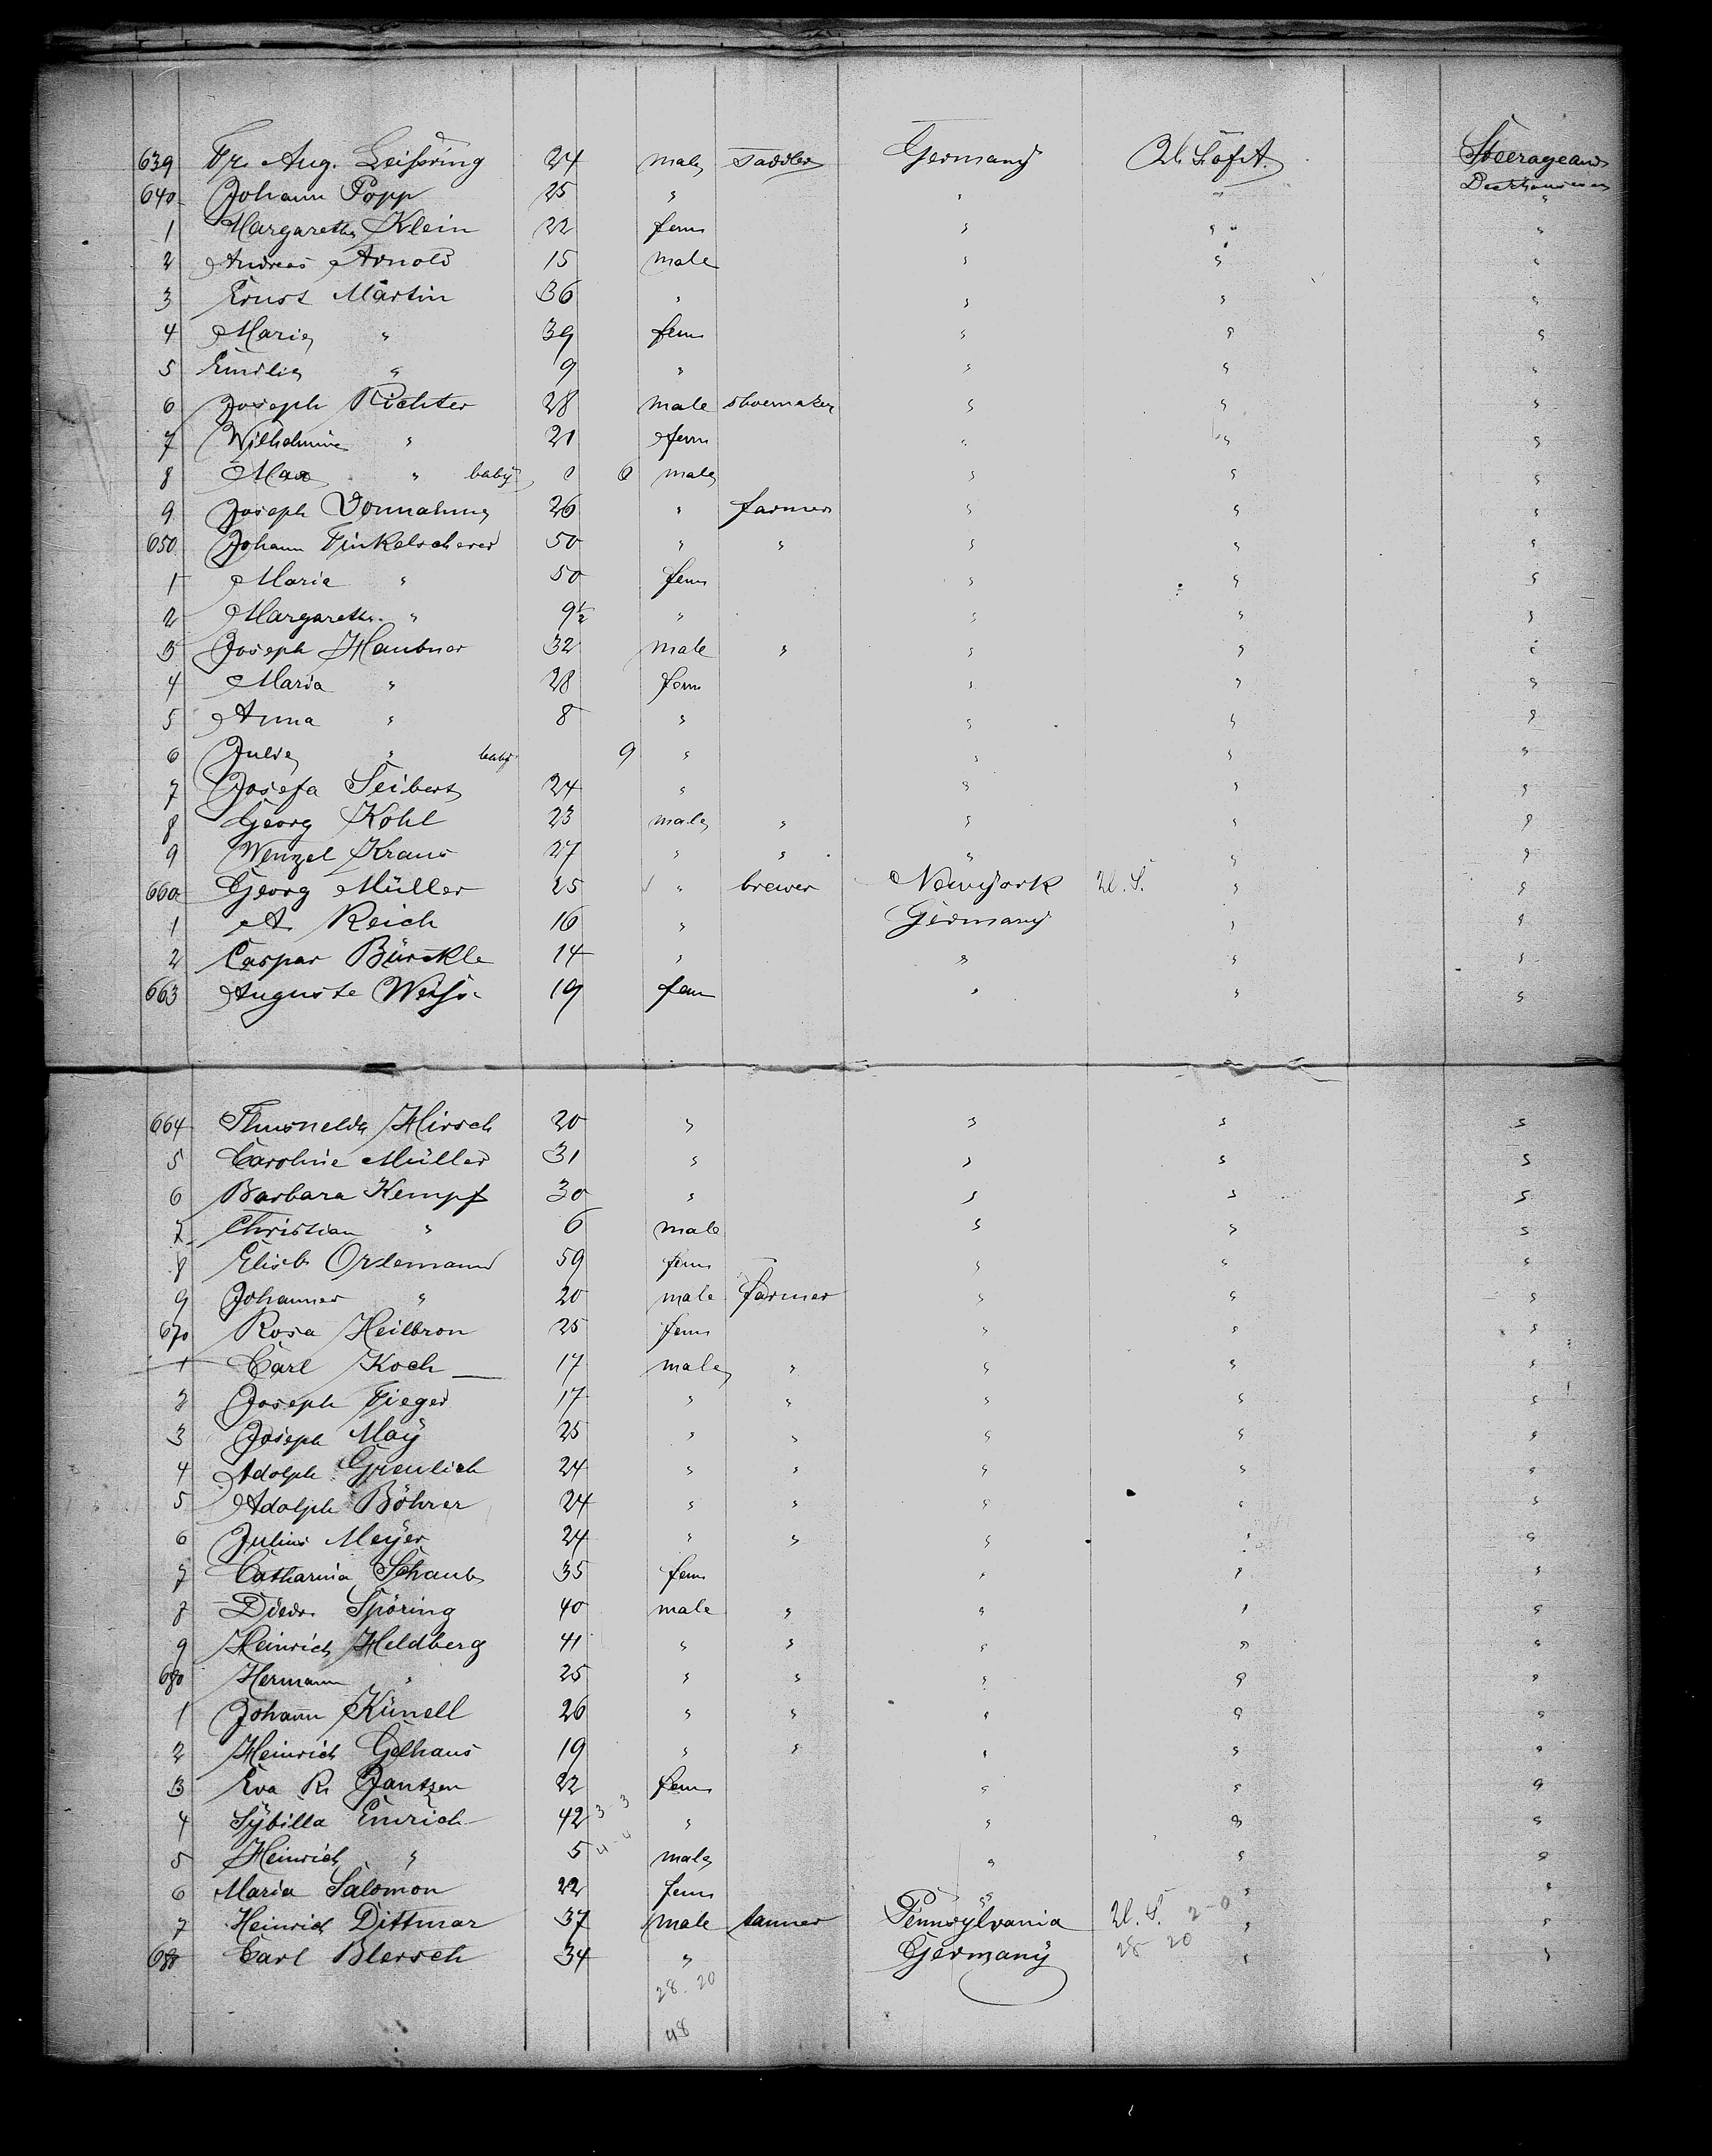 639 Fr. Aug. Leissring 24 male saddler Germany U. S. of A. Steerage and
640 Johann Popp 25 " " " "
1 Margareth Klein 22 fem " " "
2 Andreas Arnold 15 male " " "
3 Ernst Martin 36 " " " "
4 Marie " 39 fem " " "
5 Emilie " 9 " " " "
6 Joseph Richter 28 male shoemaker " " "
7 Wilhelmine " 21 fem " " "
8 Max " baby 6 male " " "
9 Joseph Vonnahme 26 " farmer " " "
650 Johann Finkelscherer 50 " " " " "
1 Marie " 50 fem " " "
2 Margareth " 9½ " " " "
3 Joseph Haubner 32 male " " " "
4 Maria " 28 fem " " "
5 Anna " 8 " " " "
6 Julie " baby 9 " " " "
7 Josefa Seibert 24 " " " "
8 Georg Kohl 23 male " " " "
9 Wenzel Kraus 27 " " " " "
660 Georg Müller 25 " brewer Newyork U. S. " "
1 A. Reich 16 " Germany " "
2 Caspar Bürckle 14 " " " "
663 Auguste Weiss 19 fem " " "
664 Thusnelda Hirsch 20 " " " "
5 Caroline Müller 31 " " " "
6 Barbara Kempf 30 " " " "
7 Christian " 6 male " " "
8 Elisb. Ordemann 59 fem " " "
9 Johannes " 20 male farmer " " "
670 Rosa Heilbron 25 fem " " "
1 Carl Koch 17 male " " " "
2 Joseph Fieger 17 " " " " "
3 Joseph Maÿ 25 " " " " "
4 Adolph Greulich 24 " " " " "
5 Adolph Böhrer 24 " " " " "
6 Julius Meÿer 24 " " " " "
7 Catharina Schaub 35 fem " " "
8 Diedr. Spöring 40 male " " " "
9 Heinrich Heldberg 41 " " " " "
680 Hermann " 25 " " " " "
1 Johann Künell 26 " " " " "
2 Heinrich Gelhaus 19 " " " " "
3 Eva R. Jantzen 22 fem " " "
4 Sÿbilla Emrich 42 3-3 " " " "
5 Heinrich " 5 4-4 male " " "
6 Maria Salomon 22 fem " " "
7 Heinrich Dittmar 37 male tanner Pennsÿlvania U. S. 2-0 " "
688 Carl Blersch 34 " Germanÿ 28 20 " "
28. 20
48